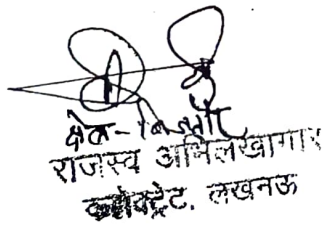 राजस्व अभिलेखागार
कलेक्ट्रेट, लखनऊ